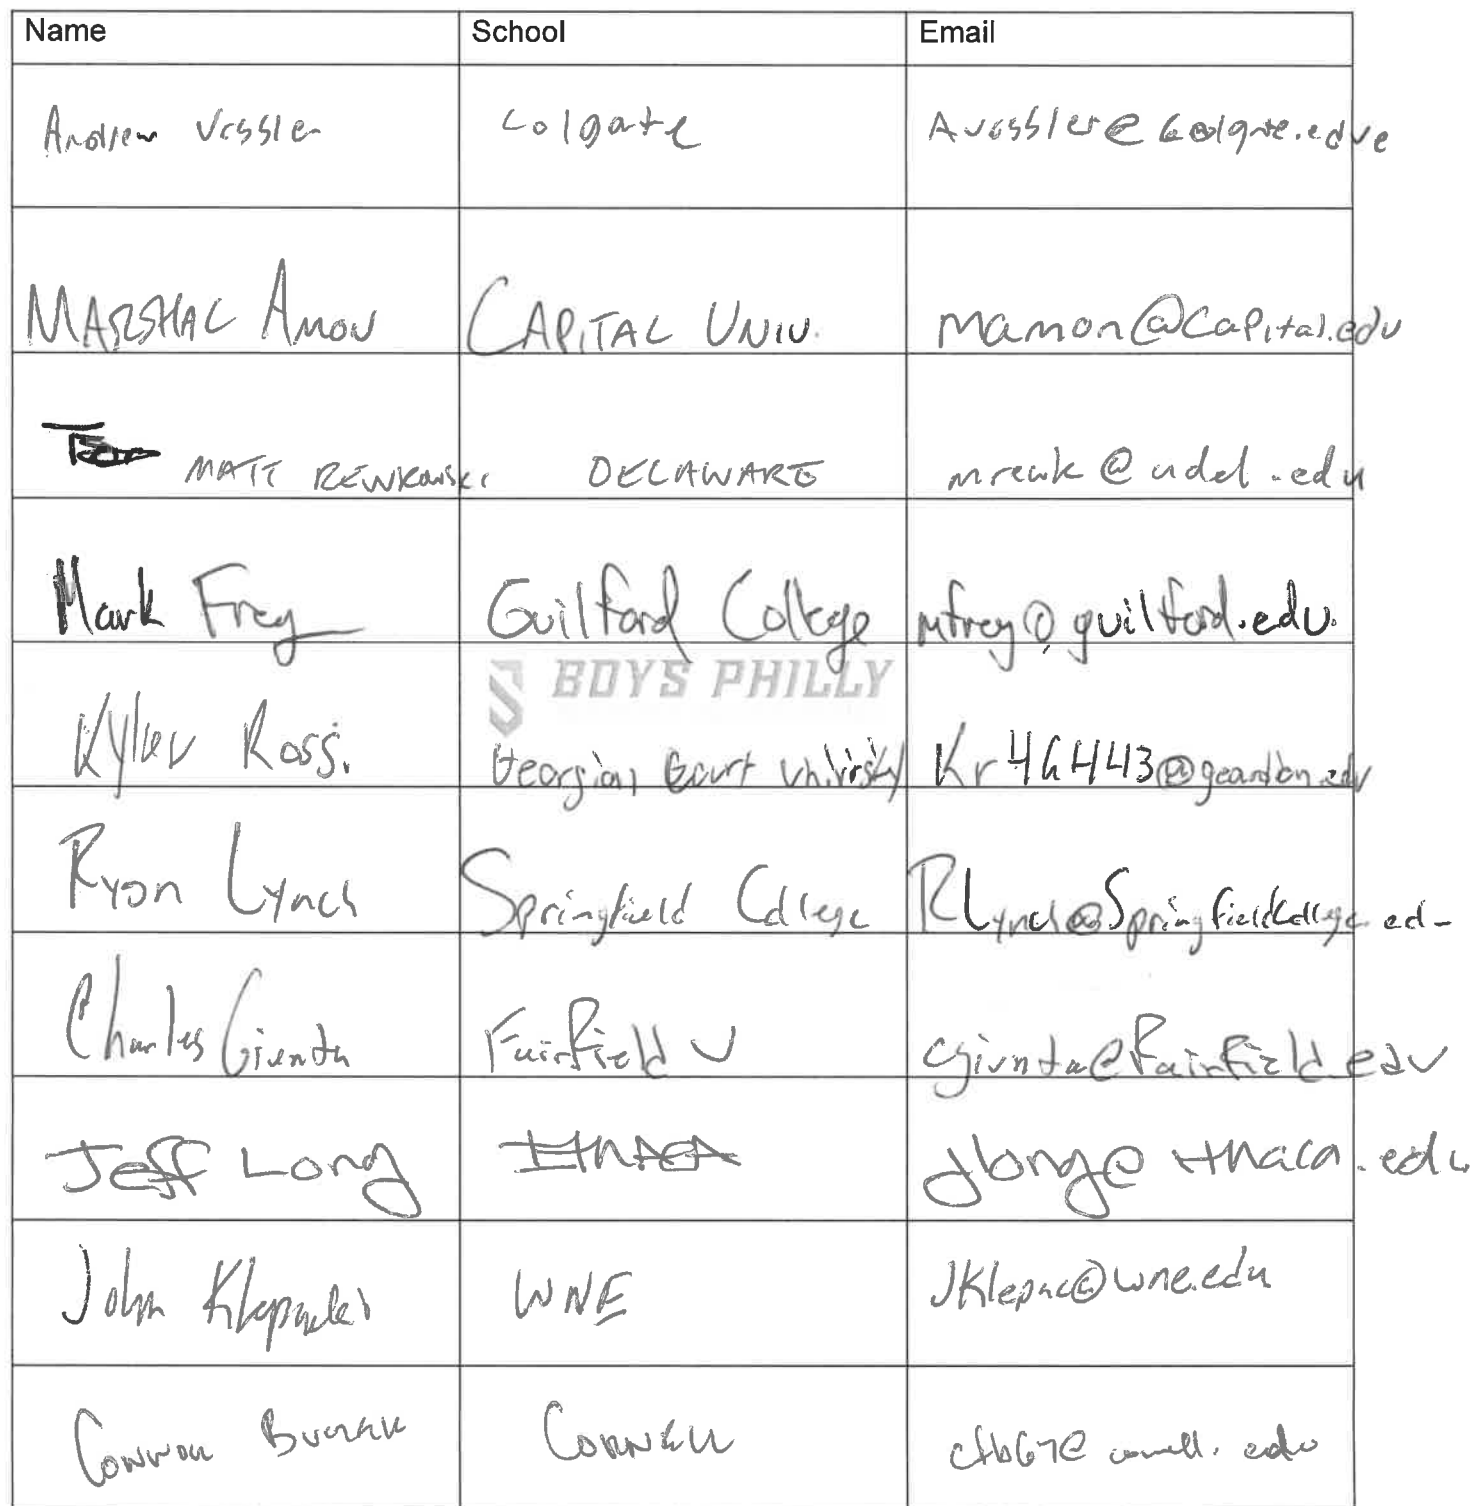 Name School Email
Andrew Vessler Colgate Avessler@colgate.edu
MARSHAL AMON CAPITAL UNIV. mamon@capital.edu
MATT REWKOWSKI DELAWARE mrewk@udel.edu
Mark Frey Guilford College mfrey@guilford.edu.
BOYS PHILLY
Ross. Georgian Court University
Ryan Lynch Springfield College RLynch@Springfieldcollege.edu
Charles Giunta Fairfield U cgiunta@fairfield.edu
Jeff Long ITHACA jlong@ithaca.edu
John WNE JKlepac@wne.edu
Connor CORNELL cfb67@cornell.edu